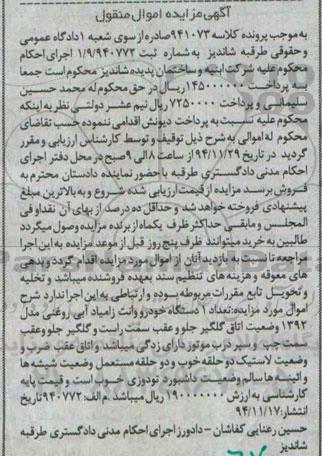 آگهی مزایده اموال منقول
به موجب پرونده کلاسه ۹۴۱۰۷۳صادره از سوی شعبه ۱دادگاه عمومی
و حقوقی طرقبه شاندیز به شماره ثبت ۱/۹/۹۴۰۷۷۲ اجرای احکام
محکوم علیه شرکت ابنیه و ساختمان پدیده شاندیز محکوم است جمعا
به پرداخت ۱۴۵۰۰۰۰۰۰ریال در حق محکوم له محمد حسین
سلیمانی و پرداخت ۷۲۵۰۰۰۰ ریال نیم عشر دولتی نظر به اینکه
محکوم علیه نسبت به پرداخت دیونش اقدامی ننموده حسب تقاضای
محکوم له اموالی به شرح ذیل توقیف و توسط کارشناس ارزیابی و مقرر
گردید در تاریخ ۹۴/۱۱/۲۹ از ساعت ۸الی ۹صبح در محل دفتر اجرای
احکام مدنی دادگستری طرقبه با حضور نماینده دادستان محترم به
فروش برسد مزایده از قیمت ارزیابی شده شروع و به بالاترین مبلغ
پیشنهادی فروخته خواهد شد و حداقل ده درصد از بهای آن نقدا و فی
المجلس و مابقی حداکثر ظرف یکماه از برنده مزایده وصول میگردد
طالبین به خرید میتوانند ظرف پنج روز قبل از موعد مزایده به این اجرا
مراجعه تا نسبت به بازدید آنان از اموال مورد مزایده اقدام گردد و بدهی
های معوقه و هزینه های تنظیم سند بعهده فروشنده میباشد و تخلیه
و تحویل تابع مقررات مربوطه بوده و ارتباطی به این اجرا ندارد شرح
اموال مورد مزایده:تعداد ۱ دستگاه خودرو وانت زامیاد آبی روغنی مدل
۱۳۹۲ وضعیت اتاق گلگیر جلو و عقب سمت راست و گلگیر جلو و عقب
سمت چپ و سپر درب موتور دارای زدگی میباشد و اتاق عقب ضرب و
وضعیت لاستیک دو حلقه خوب و دو حلقه مستعمل وضعیت شیشه ها
و آئینه ها سالم وضعیت داشبورد تودوزی خوب است و قیمت پایه
کارشناسی به ارزش ۱۹۰۰۰۰۰۰۰ ریال میباشد.م الف:۹۴۰۷۷۲تاریخ
انتشار:۹۴/۱۱/۱۷
حسین رعنایی کفاشان - دادورز اجرای احکام مدنی دادگستری طرقبه
شاندیز